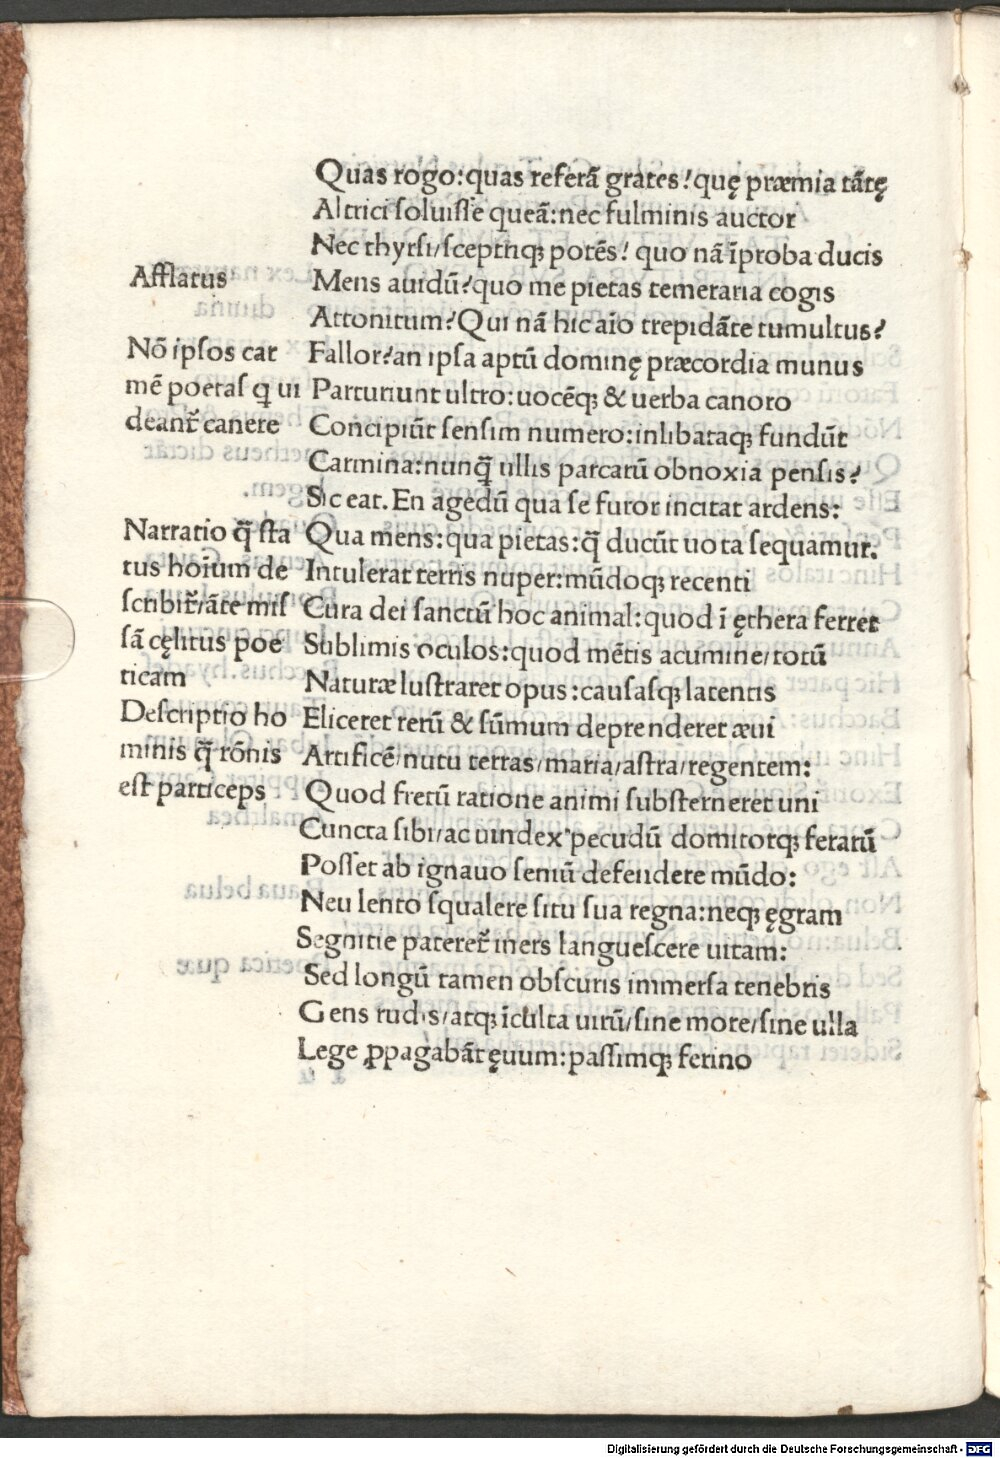 Quas rogo:quas referã grates!quę præmia tãtę
Altrici soluisse queã:nec fulminis auctor
Nec thyrsi/sceptriqꝫ potẽs! quo nã ĩproba ducis
Afflatus
Mens auidũ?quo me pietas temeraria cogis
Attonitum?Qui nã hic aĩo trepidãte tumultus?
Nõ ipsos car
Fallor?an ipsa aptũ dominę præcordia munus
mẽ poetas q̃ ui
Parturiunt ultro:uocẽqꝫ & uerba canoro
deant᷑ canere
Concipiũt sensim numero:inlibataqꝫ fundũt
Carmina:nunq̃ ullis parcarũ obnoxia pensis?
Sic eat.En agedũ qua se furor incitat ardens:
Narratio q̃ sta
Qua mens:qua pietas:q̃ ducũt uota sequamur.
tus hoĩum de
Intulerat terris nuper:mũdoqꝫ recenti
scribit᷑/ãte mis
Cura dei sanctũ hoc animal:quod ĩ ęthera ferret
sã cęlitus poe
Sublimis oculos:quod mẽtis acumine/totũ
ticam
Naturæ lustraret opus:causasqꝫ latentis
Descriptio ho
Eliceret rerũ & sũmum deprenderet æui
minis q̃ rõnis
Artificẽ/nutu terras/maria/astra/regentem:
est particeps
Quod fretũ ratione animi substerneret uni
Cuncta sibi/ac uindex pecudũ domitorqꝫ ferarũ
Posset ab ignauo seniũ defendere mũdo:
Neu lento squalere situ sua regna:neqꝫ ęgram
Segnitie pateret᷑ iners languescere uitam:
Sed longũ tamen obscuris immersa tenebris
Gens rudis/atqꝫ ĩculta uirũ/sine more/sine ulla
Lege ꝓpagabãt ęuum:passimqꝫ ferino
Digitalisierung gefördert durch die Deutsche Forschungsgemeinschaft - DFG